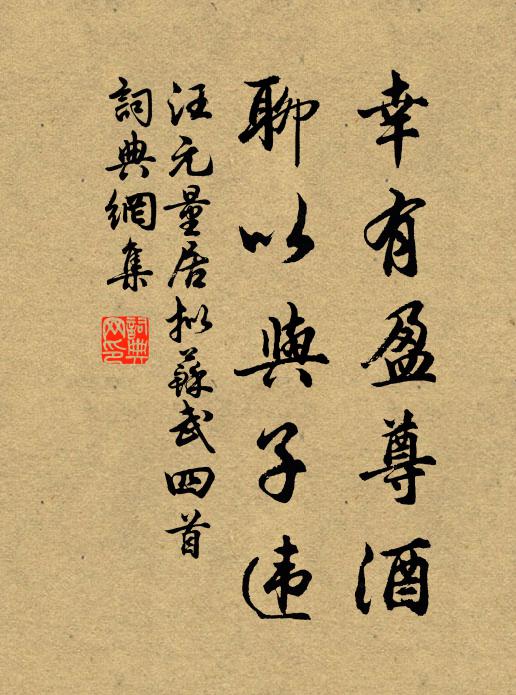 幸有盈尊酒
聊以與子违
汪元量居拟蘇武四首
詞典網集
詞典網印